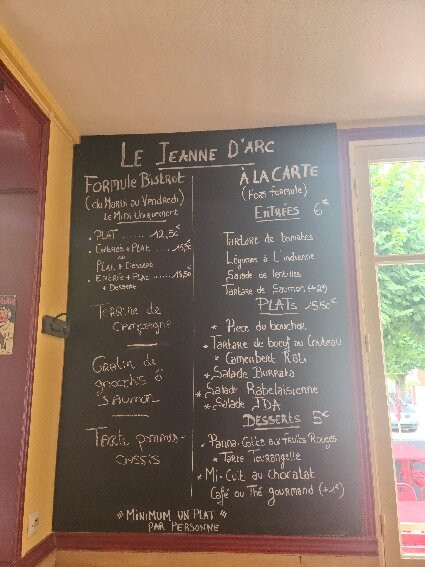 LE JEANNE D'ARC
FORMULE BISTROT
(du MARDI au VENDREDI)
le Midi Uniquement
. PLAT ........ 12,50€
. ENTRÉE + PLAT
ou
PLAT + DESSERT
. ENTRÉE + PLAT
+ DESSERT
TERRINE de
Campagne
Gratin de
gnocchis &
Saumon
Tarte pomme-
cassis
* MINIMUM UN PLAT *
PAR PERSONNE
À LA CARTE
(Hors formule)
ENTRÉES 6€
TARTARE de tomates
Légumes à L'indienne
Salade de lentilles
Tartare de Saumon
PLATS 15,50€
* Pièce du boucher
* Tartare de boeuf au Couteau
* Camembert Rôti
* Salade BURRATA
* Salade Rabelaisienne
* Salade JDA
DESSERTS 5€
. Panna-Cotta aux fruits Rouges
* Tarte Tourangelle
* Mi-Cuit au Chocolat
Café ou Thé gourmand